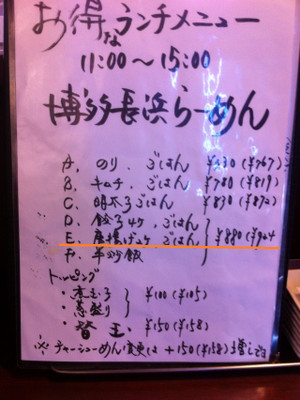 お得なランチメニュー
11:00〜15:00
博多長浜らーめん
A. のり、ごはん ¥730 (¥767)
B. キムチ、ごはん ¥780 (¥819)
C. 明太子ごはん ¥830 (¥872)
D. 餃子4ヶ、ごはん
E. 唐揚げ2ヶ ごはん ¥880 (¥924
F. 半炒飯
トッピング
・煮玉子
・葱盛り ¥100 (¥105)
・替玉 ¥150 (¥158)
※チャーシューめん変更は +150 (¥158) 増しです